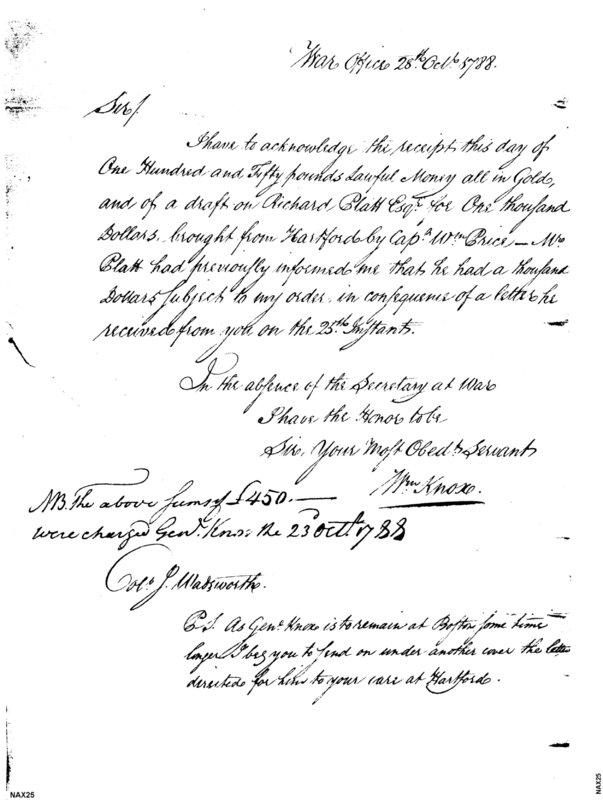 War Office 28th Octr 1788.
Sir/
I have to acknowledge the receipt this day of
One Hundred and Fifty pounds Lawful Money all in Gold,
and of a draft on Richard Platt Esqr for One thousand
Dollars, brought from Hartford by Capn Wm Price — Mr
Platt had previously informed me that he had a thousand
Dollars subject to my order, in consequence of a letter he
received from you on the 25th Instant.
In the absence of the Secretary at War
I have the Honor to be
Sir, Your Most Obedt Servant
Wm Knox.
NB. The above sums of £450.—
were charged Genl Knox the 23d Octr 1788
Colo J. Wadsworth.
P.S. As Genl Knox is to remain at Boston some time
longer I beg you to send on under another cover the letter
directed for him to your care at Hartford.
NAX25
NAX25